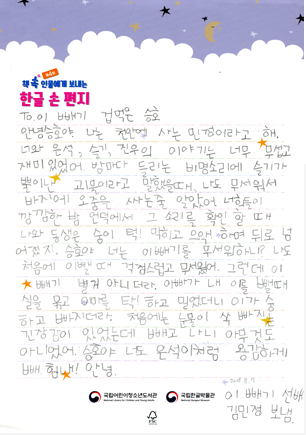 제4회
책 속 인물에게 보내는
한글 손 편지
To. 이 빼기 겁먹은 승호
안녕 승호야 나는 천안에 사는 민경이라고 해.
너와 은석, 슬기, 진우의 이야기는 너무 무섭고
재미있었어. 밤마다 들리는 비명소리에 슬기가
뿔이난 괴물이라고 말했을때, 나도 무서워서
바지에 오줌을 싸는줄 알았어 너희들이
깜깜한 밤 언덕에서 그 소리를 확인 할 때
나와 동생은 숨이 턱! 막히고 으악 하며 뒤로 넘
어졌지. 승호야 너는 이빼기를 무서워하니? 나도
처음에 이뺄 때 걱정스럽고 무서웠어. 그런데 이
빼기 별거 아니더라. 아빠가 내 이를 뺄때
실을 묶고 이마를 탁! 하고 밀었더니 이가 슝
하고 빠지더라. 처음에는 눈물이 쏙 빠지는
긴장감이 있었는데 빼고 나니 아무것도
아니었어. 승호야 너도 은석이처럼 용감하게
빼 힘내! 안녕.
이 빼기 선배
김민경 보냄.
국립어린이청소년도서관
국립한글박물관
FSC